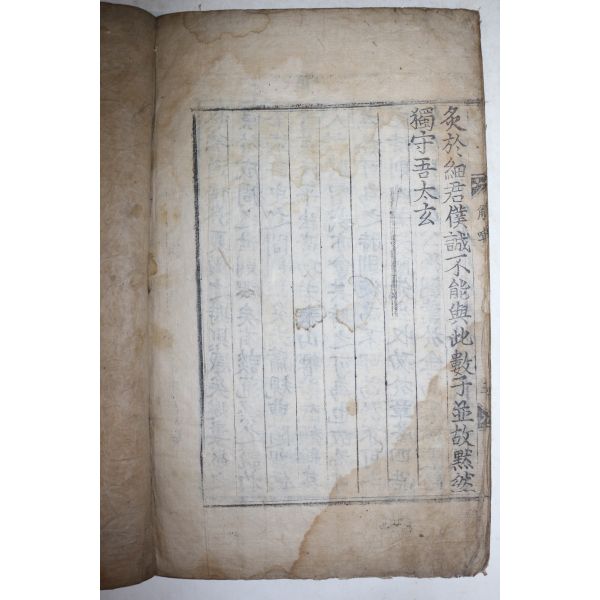 炙於細君僕誠不能與此數子並故默然
獨守吾太玄